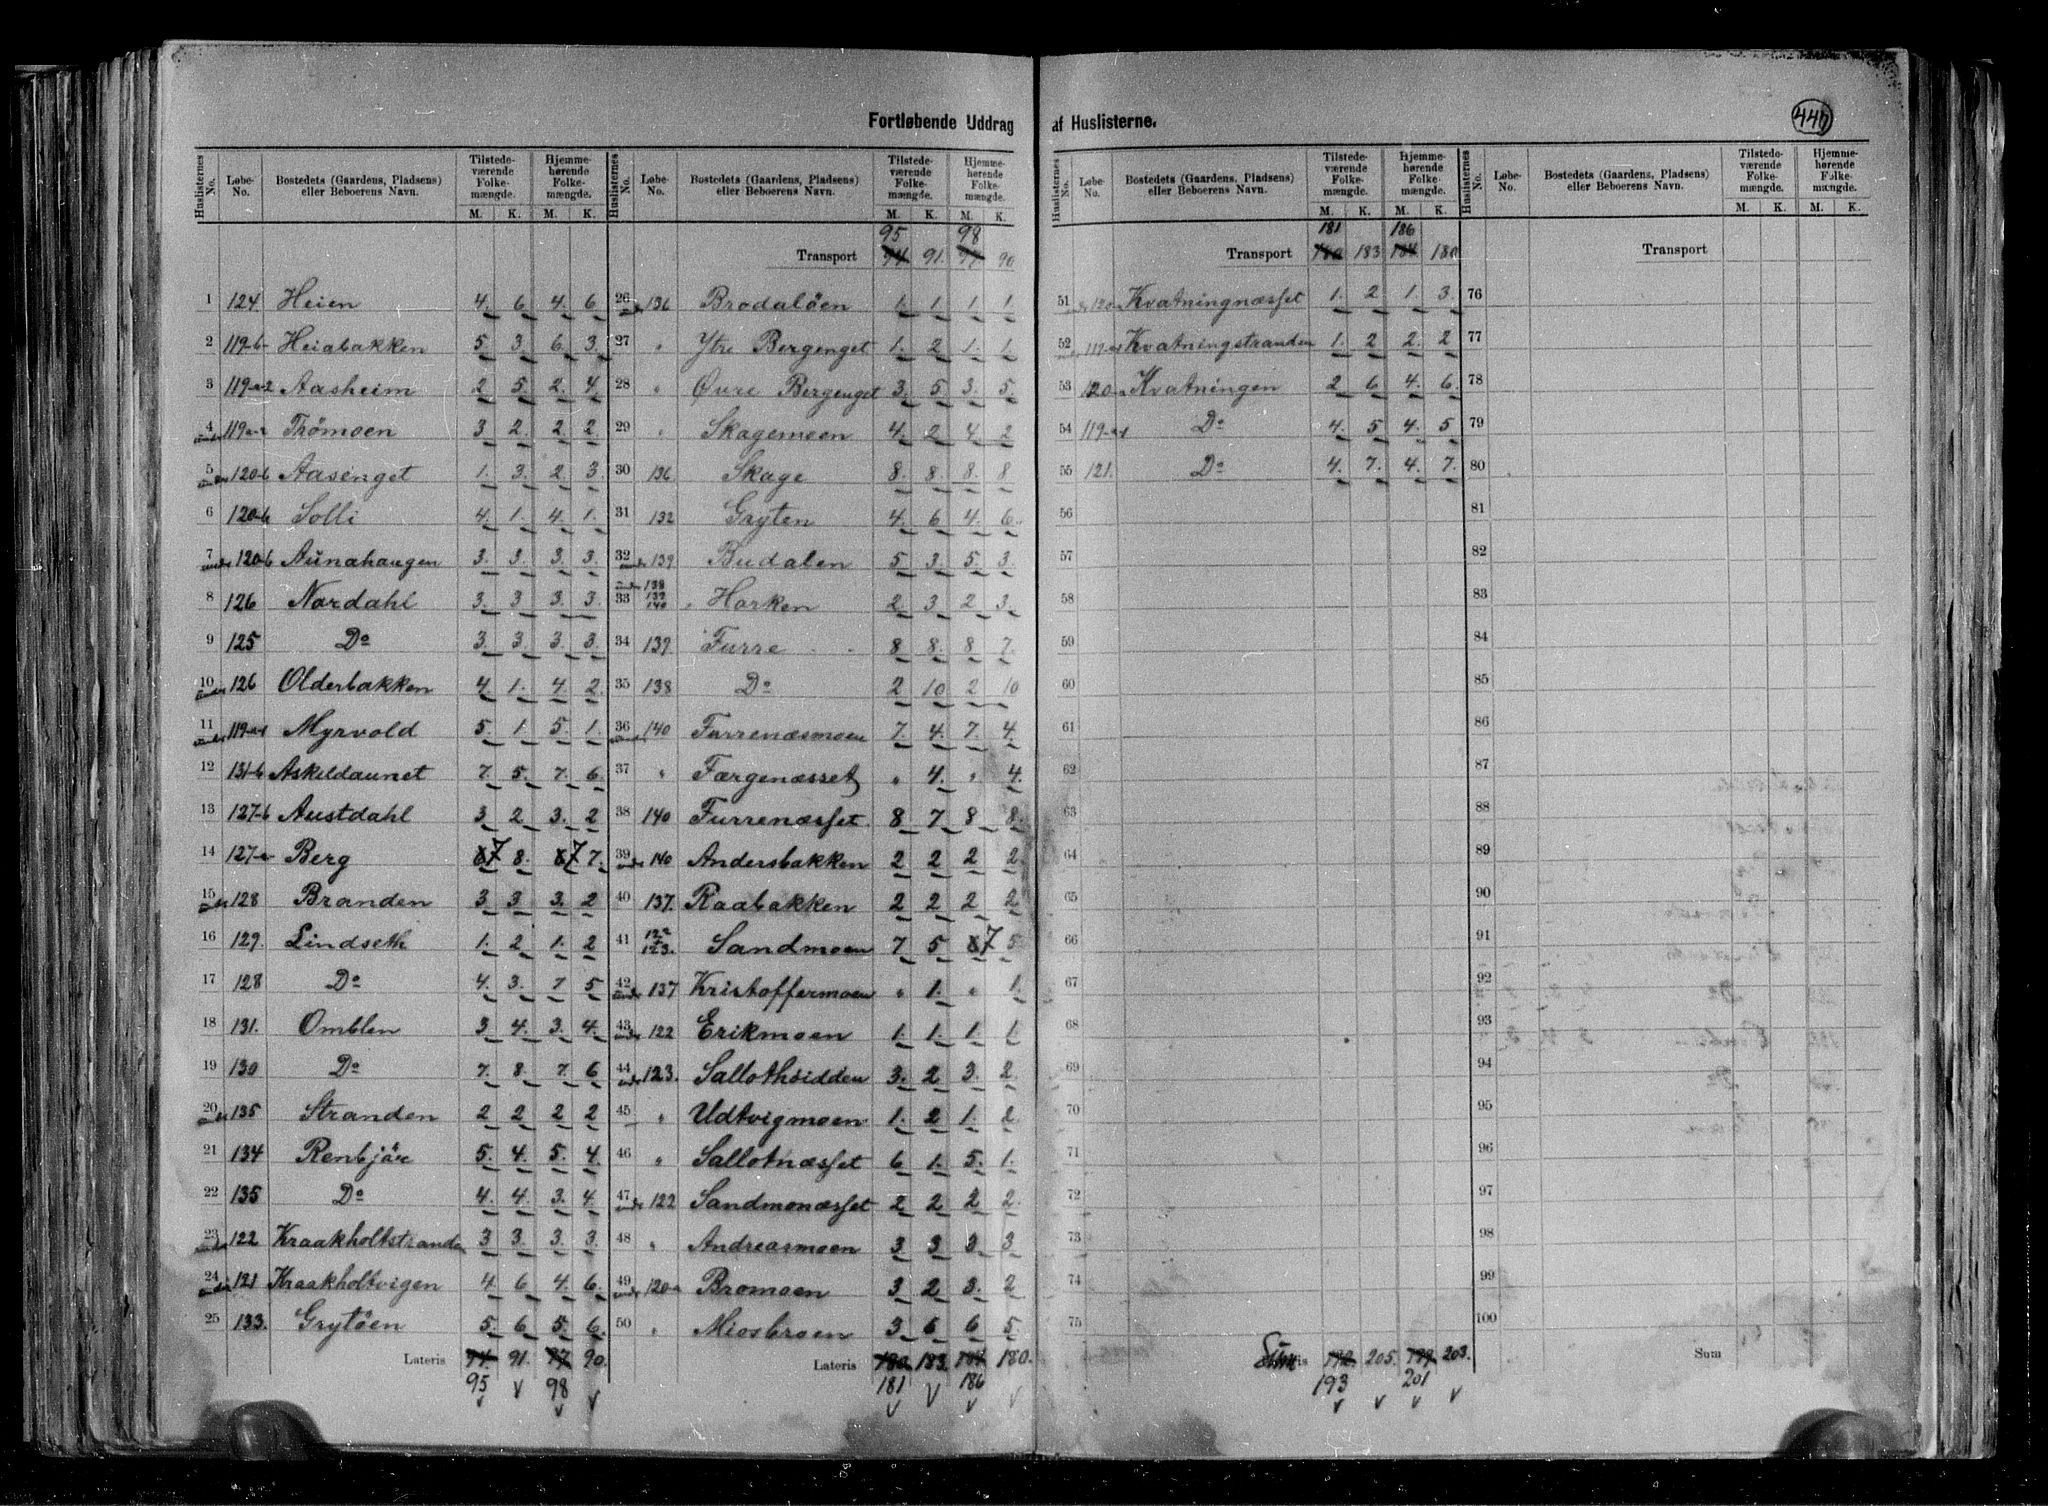 Fortløbende Uddrag af Huslisterne.
447
Huslisternes No. Løbe-No. Bostedets (Gaardens, Pladsens) eller Beboerens Navn. Tilstedeværende Folkemængde. M. K. Hjemmehørende Folkemængde. M. K.
1 124. Heien 4. 6. 4. 6.
2 119-b Heiabakken 5. 3. 6. 3.
3 119-a-2 Aasheim 2. 5. 2. 4.
4 under 119-a-2 Trømoen 3. 2. 2. 2.
5 under 120-b Aasenget 1. 3. 2. 3.
6 120-b Solli 4. 1. 4. 1.
7 under 120-b Aunahaugen 3. 3. 3. 3.
8 126 Nordahl 3. 3 3. 3.
9 125 Do 3. 3. 3. 3.
10 under 126 Olderbakken 4. 1. 4. 2.
11 under 119-a-1 Myrvold 5. 1. 5. 1.
12 131-b Askildaunet 7. 5. 7. 6.
13 127-b Austdahl 3. 2. 3. 2
14 127-a Berg 7 8. 7 7.
15 under 128 Branden 3. 3 3. 2
16 129. Lindseth 1. 2 1. 2
17 128 Do 4. 3. 7. 5
18 131. Omblen 3. 4. 3. 4.
19 130 Do 7. 8. 7. 6
20 under 135 Stranden 2 2 2 2
21 134 Renbjør 5. 4. 5. 4.
22 135 Do 4. 4. 3. 4.
23 under 122 Kraakholtstranden 3 3. 3. 3.
24 under 121 Kraakholtvigen 4. 6 4. 6.
25 133. Grytøen 5. 6. 5. 6.
Lateris 94. 91. 97 90.
95 v 98 v
Huslisternes No. Løbe-No. Bostedets (Gaardens, Pladsens) eller Beboerens Navn. Tilstedeværende Folkemængde. M. K. Hjemmehørende Folkemængde. M. K.
95 98
Transport 94 91. 97 90
26 under 136 Brodaløen 1. 1. 1. 1.
27 " Ytre Bergenget 1. 2 1. 1.
28 " Øvre Bergenget 3. 5. 3. 5.
29 " Skagemoen 4. 2 4. 2
30 136 Skage 8. 8. 8. 8
31 132 Gryten 4. 6 4. 6.
32 under 139 Budalen 5. 3. 5. 3.
33 under 138 139 140 Harken 2. 3. 2 3.
34 139 Furre 8 8. 8 7.
35 138 Do 2 10 2 10
36 under 140 Furrenæsmoen 7. 4. 7. 4.
37 " Færgenæsset " 4. " 4.
38 140 Furrenæsset 8 7 8 8.
39 under 140 Andersbakken 2 2 2 2.
40 137. Raabakken 2 2 2 2
41 122 123. Sandmoen 7 5 7 5
42 under 137 Kristoffermoen " 1. " 1.
43 under 122 Erikmoen 1. 1. 1. 1.
44 under 123. Sallothsidden 3. 2 3. 2.
45 " Udtvigmoen 1. 2 1. 2
46 " Sallotnæsset 6 1. 5. 1.
47 under 122 Sandmonæsset 2 2 2 2.
48 " Andreasmoen 3 3 3 3
49 under 120-a Bromoen 3 2 3. 2
50 " Miosbroen 3 6 6 5
Lateris 180 183. 184 180.
181 v 186 v
Huslisternes No. Løbe-No. Bostedets (Gaardens, Pladsens) eller Beboerens Navn. Tilstedeværende Folkemængde. M. K. Hjemmehørende Folkemængde. M. K.
181 186
Transport 180 183 184 180
51 under 120-a Kvatningnæsset 1. 2 1. 3.
52 under 119-a-1 Kvatningstranden 1. 2 2. 2
53 120-a Kvatningen 2 6 4. 6.
54 119-a-1 Do 4. 5 4. 5
55 121. Do 4. 7. 4. 7.
56
57
58
59
60
61
62
63
64
65
66
67
68
69
70
71
72
73
74
75
Sum 192 205. 199 203.
193 v 201 v
Huslisternes No. Løbe-No. Bostedets (Gaardens, Pladsens) eller Beboerens Navn. Tilstedeværende Folkemængde. M. K. Hjemmehørende Folkemængde. M. K.
Transport
76
77
78
79
80
81
82
83
84
85
86
87
88
89
90
91
92
93
94
95
96
97
98
99
100
Sum